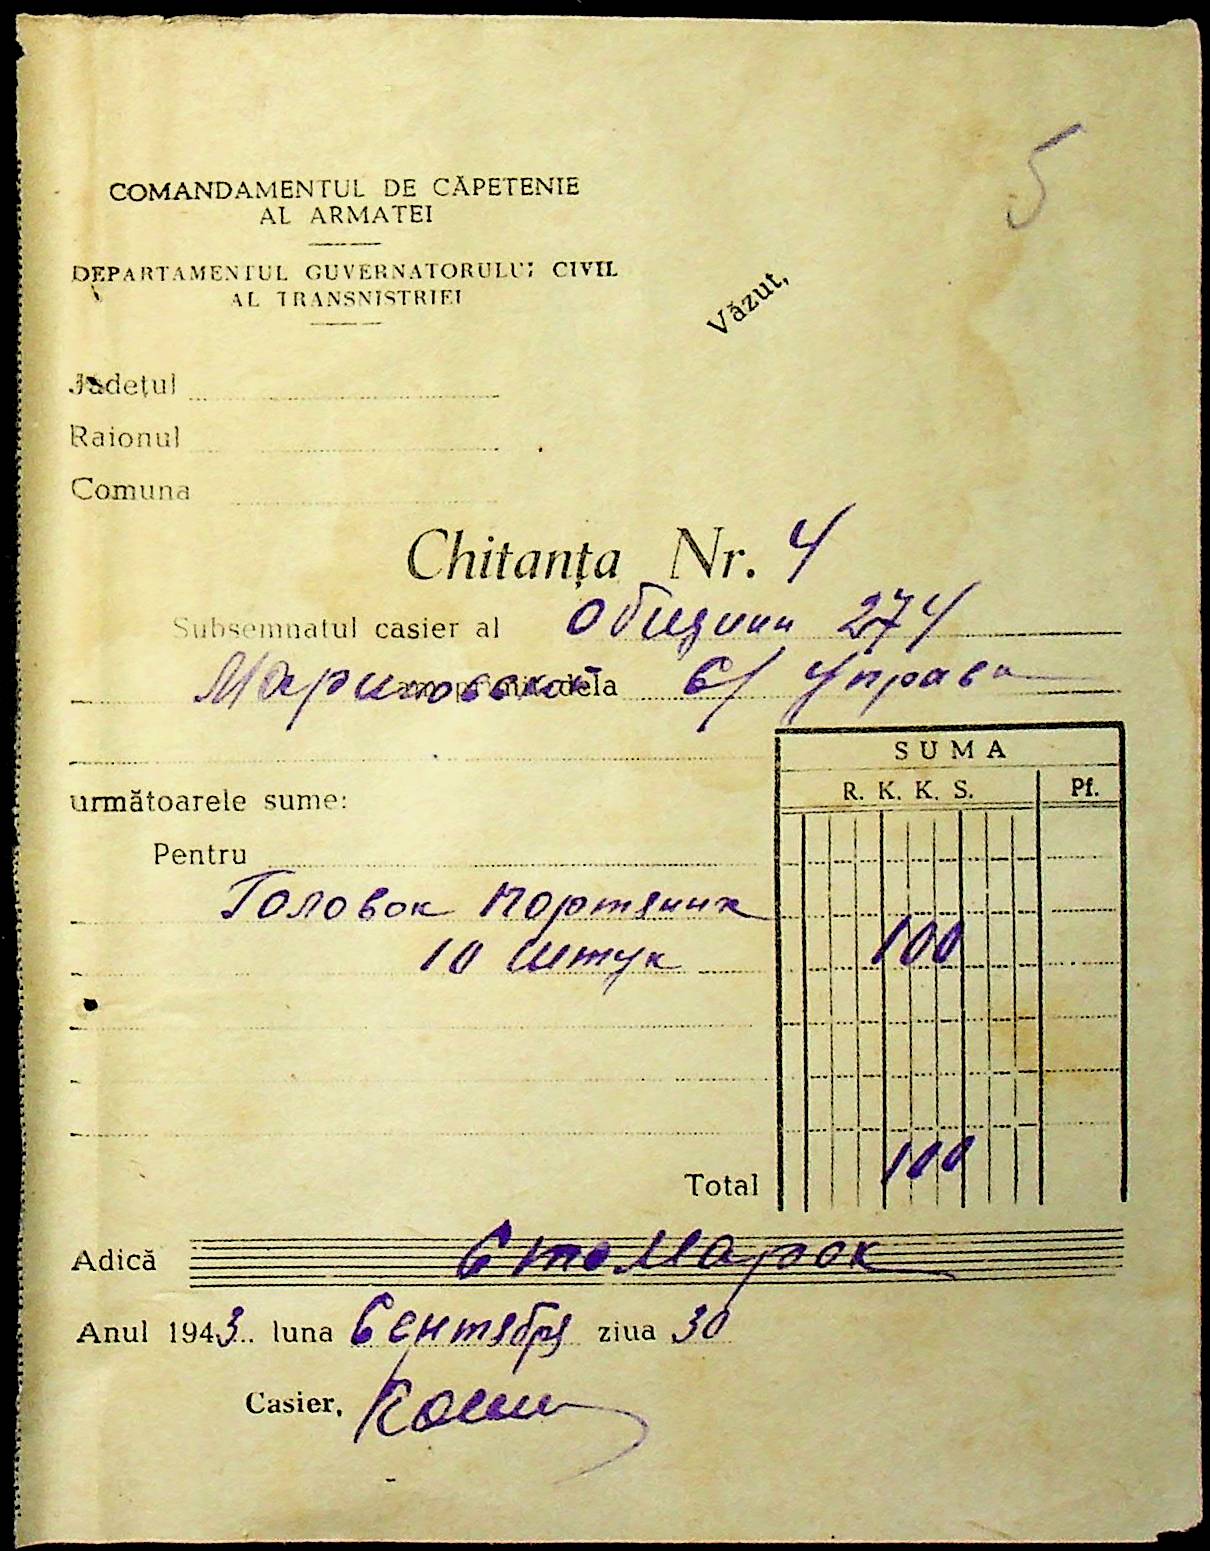 5
COMANDAMENTUL DE CĂPETENIE
AL ARMATEI
DEPARTAMENTUL GUVERNATORULUI CIVIL
AL TRANSNISTRIEI
Văzut,
Județul
Raionul
Comuna
Chitanța Nr. 4
Subsemnatul casier al Общини 274
dela С/Управа
SUMA
R. K. K. S. Pf.
următoarele sume:
Pentru
Головок портяник
10 штук 100
Total 100
Adică Сто Марок
Anul 1943.. luna Сентября ziua 30
Casier,